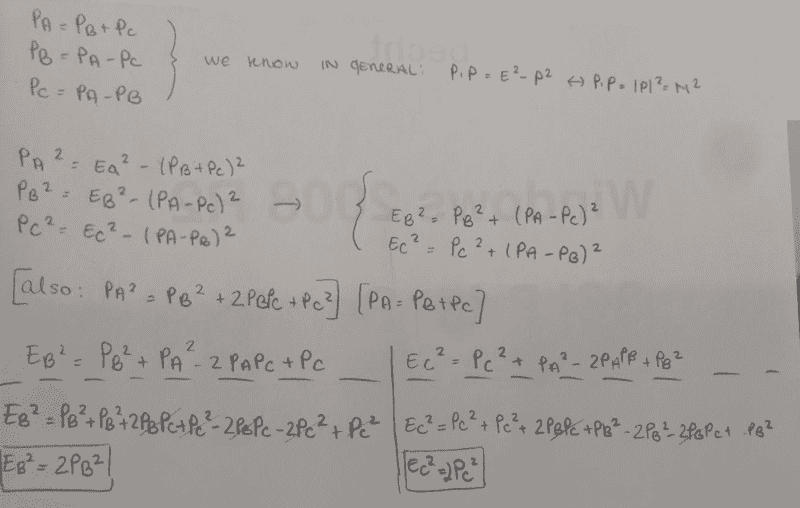 PA = PB + PC
PB = PA - PC
PC = PA - PB
we know IN GENERAL: P.P = E² - P² ↔ P.P = |P|² = M²
PA² = Ea² - (PB+PC)²
PB² = EB² - (PA-PC)² →
PC² = EC² - (PA-PB)²
EB² = PB² + (PA-PC)²
EC² = PC² + (PA-PB)²
[also: PA² = PB² + 2PBPC + PC²] [PA = PB+PC]
EB² = PB² + PA² - 2PAPC + PC
EB² = PB² + PB² + 2PBPC + PC² - 2PBPC - 2PC² + PC²
EB² = 2PB²
EC² = PC² + PA² - 2PAPB + PB²
EC² = PC² + PC² + 2PBPC + PB² - 2PB² - 2PBPC + PB²
EC² = 2PC²
Windows 2008 R2